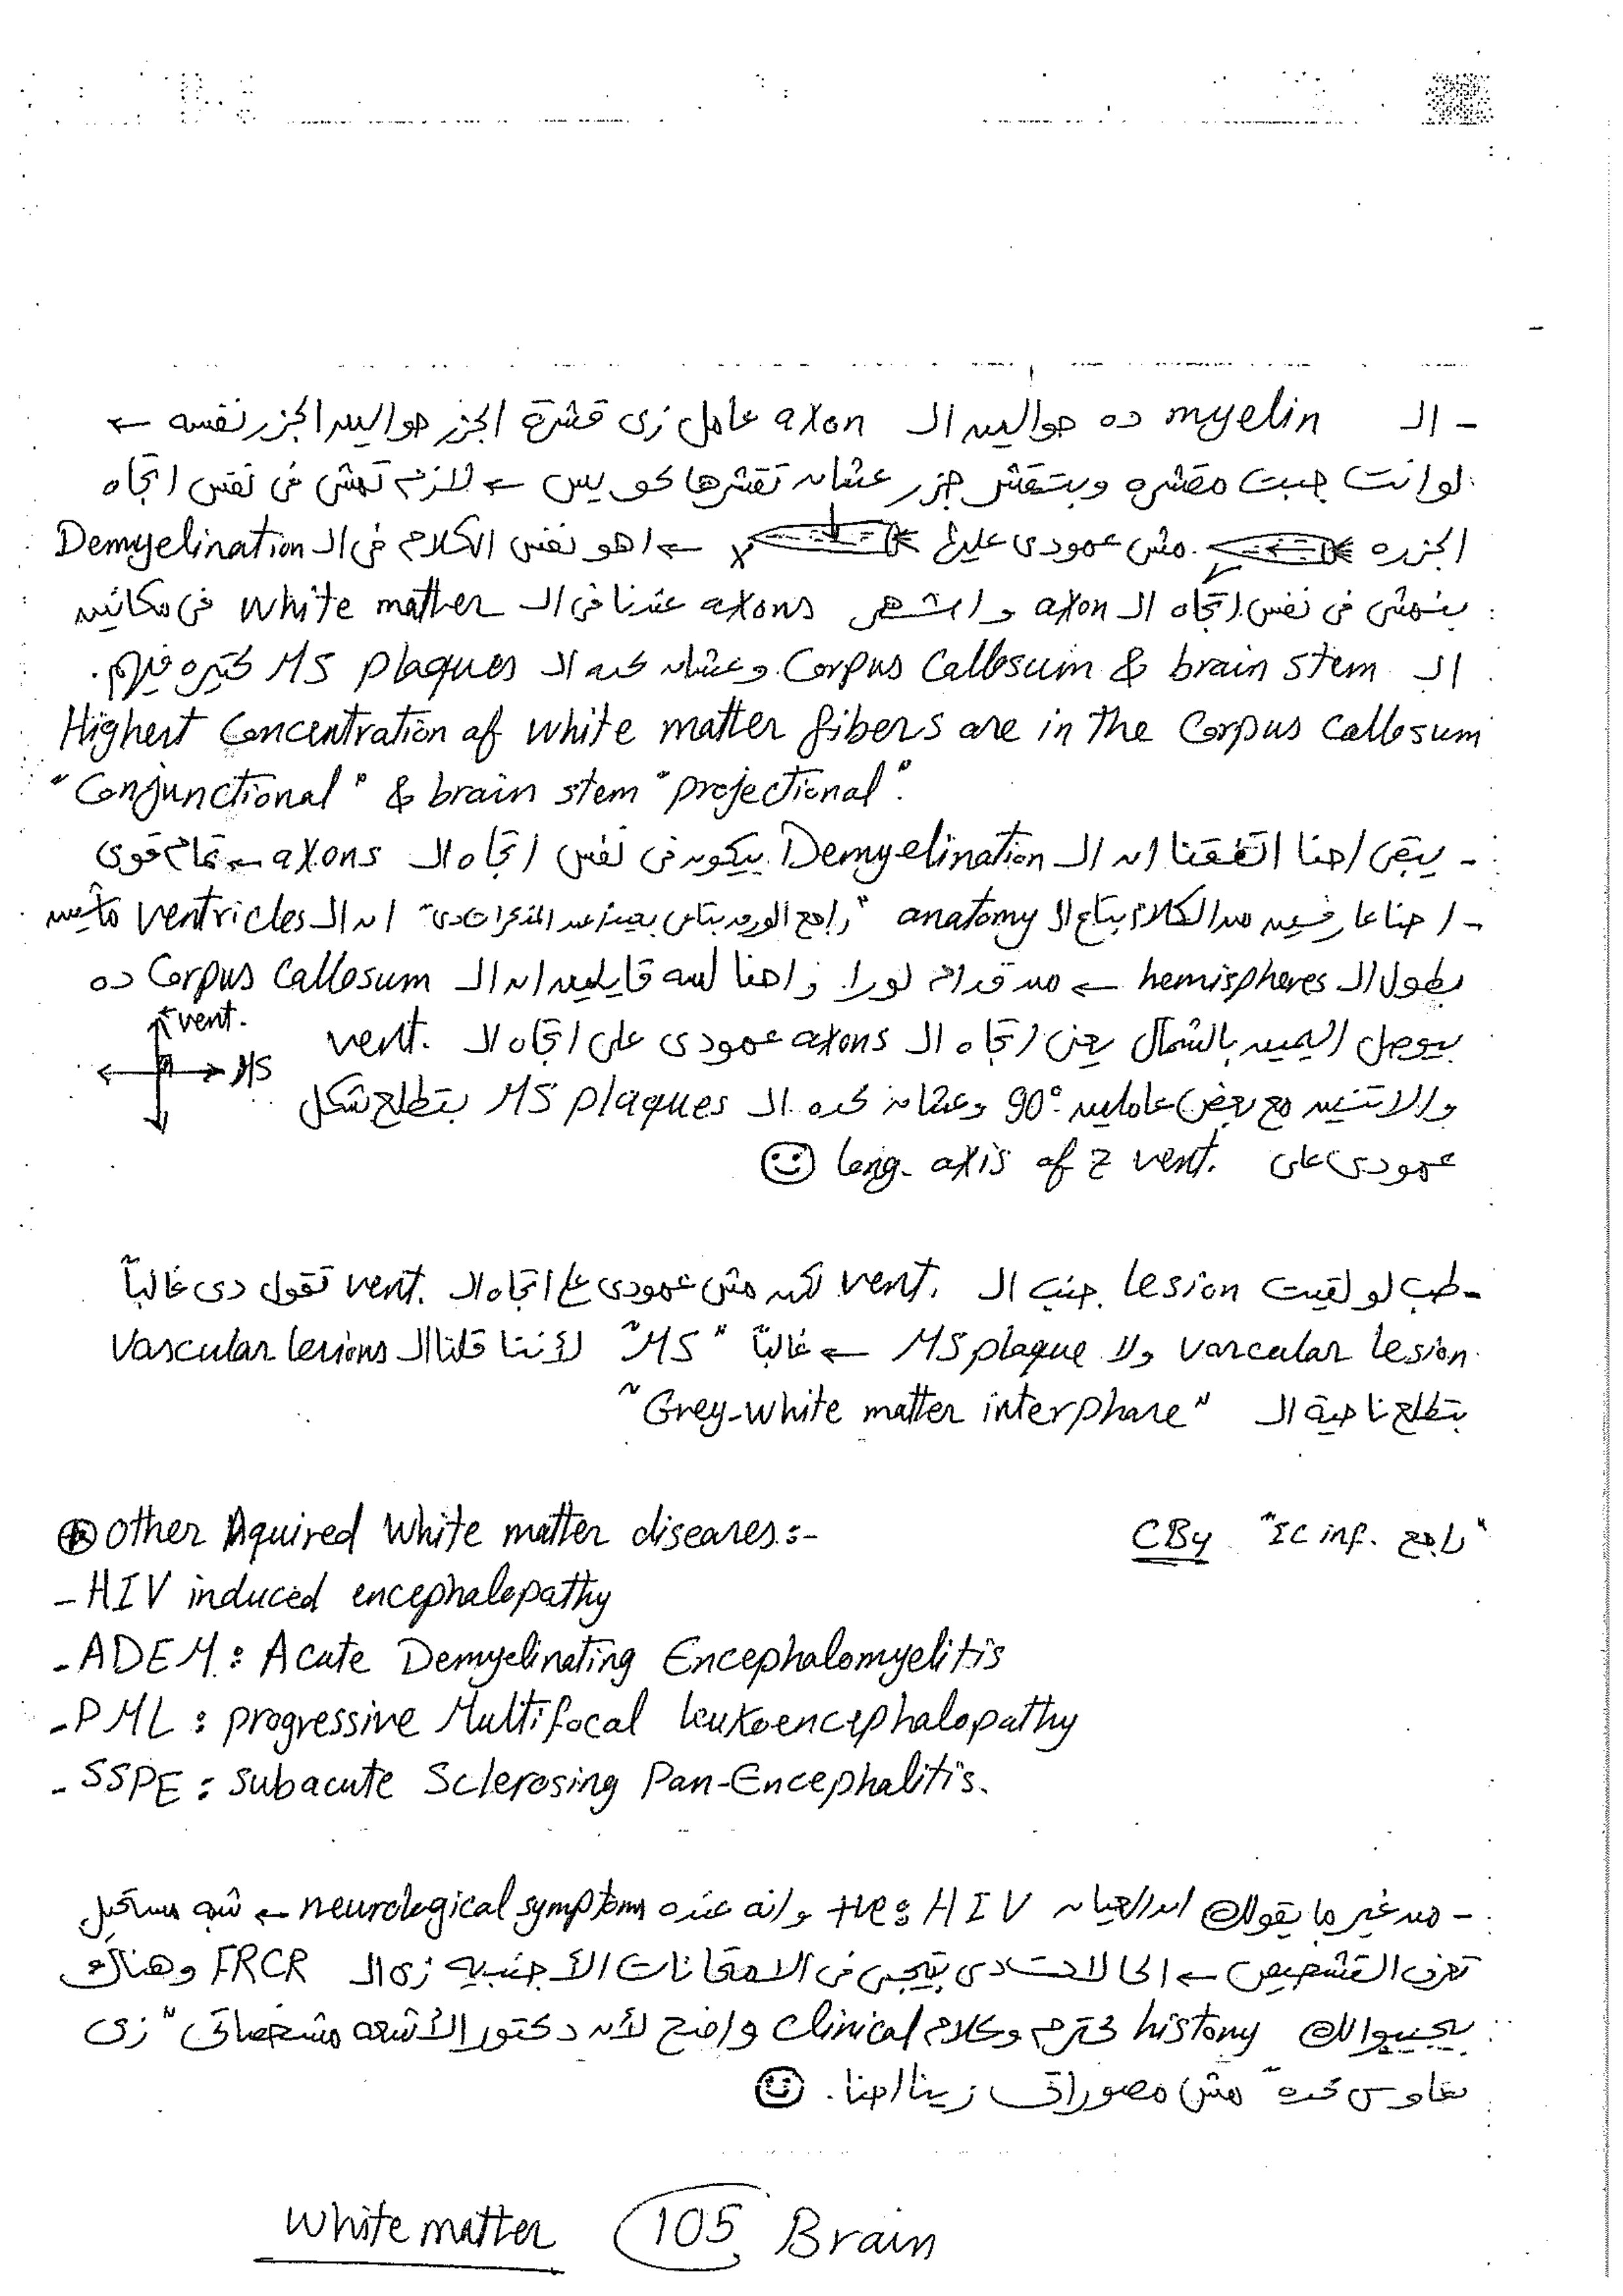 - الـ myelin ده حوالين الـ axon عامل زى قشرة الجزر حوالين الجزر نفسه ←
لو انت جبت مقشره وبتقشر جزر عشان تقشرها كويس ← لازم تمشى فى نفس اتجاه
الجزره مش عمودى عليها x ← اهو نفس الكلام فى الـ Demyelination
بنمشى فى نفس اتجاه الـ axon و axons عندنا فى الـ white matter فى مكانين
الـ Corpus Callosum & brain stem وعشان كده الـ MS plaques كتيره فيهم.
Highest Concentration of white matter fibers are in the Corpus Callosum
"Conjunctional" & brain stem "projectional".
- يبقى احنا اتفقنا ان الـ Demyelination بيكون فى نفس اتجاه الـ axons ← تمام قوى
- احنا عارفين من الكلام بتاع الـ anatomy "راجع الورد بتاعى المذكرات دى" ان الـ ventricles ماشيين
بطول الـ hemispheres ← من قدام لورا. واحنا لسه قايلين ان الـ Corpus Callosum ده
بيوصل اليمين بالشمال يعنى اتجاه الـ axons عمودى على اتجاه الـ vent.
vent.
MS
والاتنين مع بعض عاملين 90° وعشان كده الـ MS plaques بتطلع شكل
عمودى على long. axis of z vent. ☺
- طب لو لقيت lesion جنب الـ vent. لكن مش عمودى على اتجاه الـ vent. تقول دى غالباً
vascular lesion ولا MS plaque ← غالباً "MS" لأننا قلنا الـ Vascular lesions
بتطلع ناحية الـ "Grey-white matter interphase"
⊛ other Aquired White matter diseases:-
CBy "راجع IC inf."
- HIV induced encephalopathy
- ADEM: Acute Demyelinating Encephalomyelitis
- PML: progressive Multifocal leukoencephalopathy
- SSPE: subacute Sclerosing Pan-Encephalitis.
- من غير ما يقولك ان العيان HIV +ve وانه عنده neurological symptoms ← شبه مستحيل
تعرف التشخيص ← الحالات دى بتيجى فى الامتحانات الأجنبيه زى الـ FRCR وهناك
بيجيبوالك history محترم وكلام clinical واضح لأن دكتور الأشعه مشخصاتى "زى
نفاوس كده" مش مصوراتى زينا احنا. ☺
White matter 105 Brain